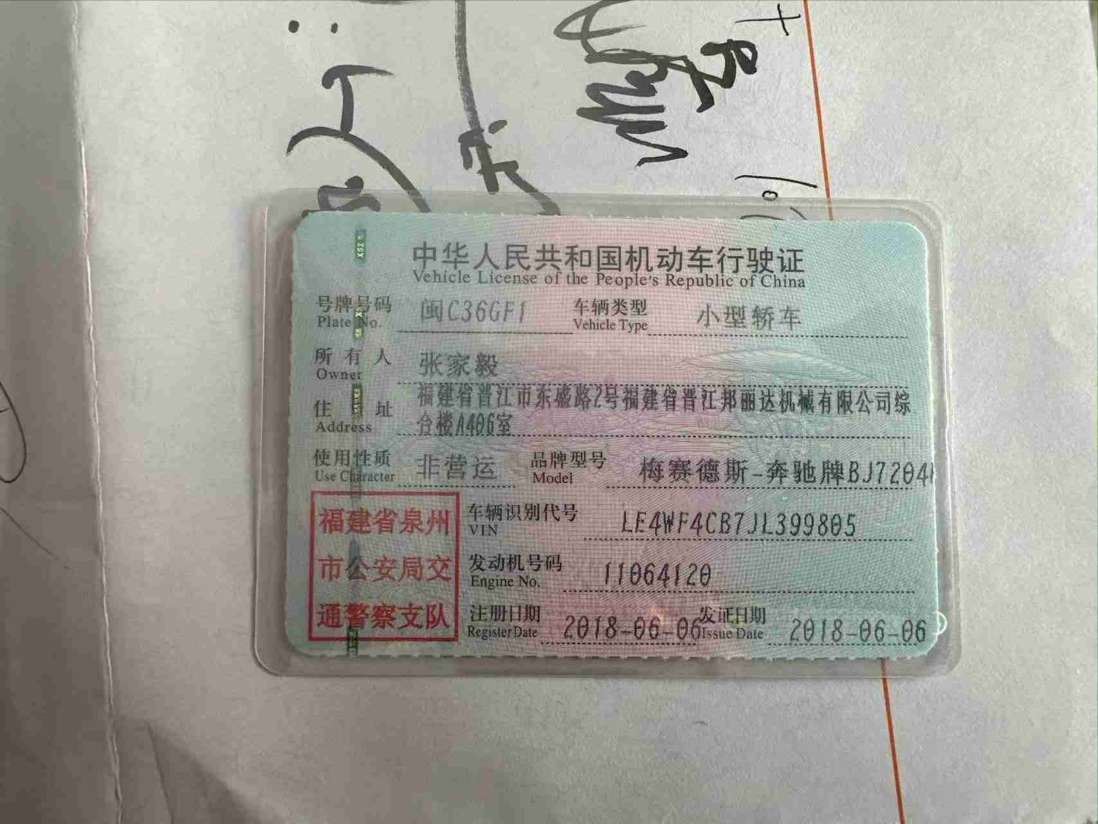 中华人民共和国机动车行驶证
Vehicle License of the People's Republic of China
号牌号码 闽C36GF1 车辆类型 小型轿车
Plate No. Vehicle Type
所有人 张家毅
Owner
住址 福建省晋江市东盛路2号福建省晋江邦丽达机械有限公司综
Address 合楼A406室
使用性质 非营运 品牌型号 梅赛德斯-奔驰牌BJ7204
Use Character Model
福建省泉州
市公安局交
通警察支队
车辆识别代号 LE4WF4CB7JL399805
VIN
发动机号码 11064120
Engine No.
注册日期 2018-06-06 发证日期 2018-06-06
Register Date Issue Date